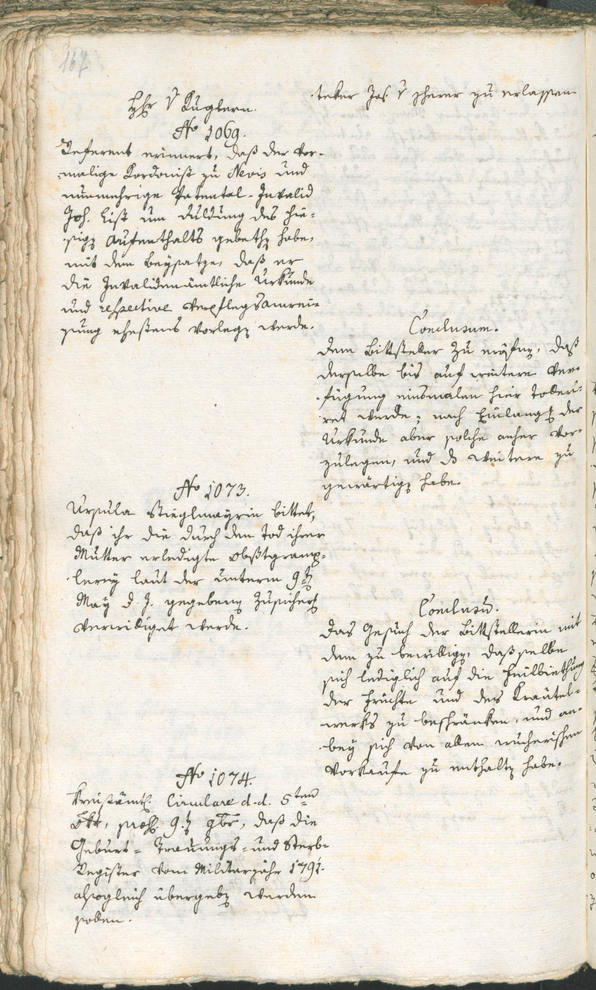 167
Hr v Kuglern.
No 1069.
Referent erinnert, daß der vor-
malige Kordonist zu Novis und
nunmehrige Patental-Invalid
Joh. List um Duldung des hie-
sigen Aufenthalts gebethen habe,
mit dem Beysatze, daß er
die Invalidenämtliche Urkunde
und respective
ehestens vorlegen werde.
No 1073.
Ursula Stieglmayrin bittet,
daß ihr die durch den Tod ihrer
Mutter erledigte Obstgramp-
lerey laut der unterm 9ten
May d. J. gegebenen Zusicherung
verwilliget werde.
No 1074.
Kreisämtl. Circulare d. d. 5ten
8br, 9ten 9br, daß die
Geburt- Trauungs- und Sterb-
Register vom Militarjahr 1791.
alsogleich übergeben werden
sollen.
Jos. v zu erlassen
Conclusum.
Dem Bittsteller zu eröfnen, daß
derselbe bis auf weitere Ver-
fügung einsmalen hier toleri-
ret werde; nach Einlangung der
Urkunde aber solche anher vor-
zulegen, und das weitere zu
gewärtigen habe.
Conclusum.
Das Gesuch der Bittstellerin mit
dem zu bewilligen, daß selbe
sich lediglich auf die Feilbiethung
der Früchte und des Kräutel-
werks zu beschränken, und an-
bey sich von allem wucherischen
Vorkaufe zu enthalten habe.